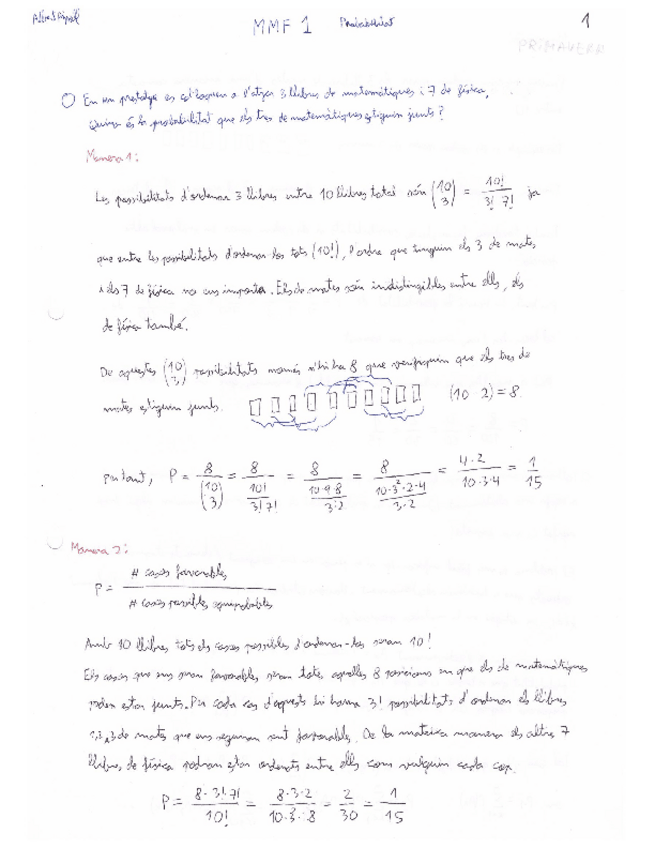 MMF 1 Probabilitat 1
PRIMAVERA
En un prestatge es col·loquen a l'atzar 3 llibres de matemàtiques i 7 de física,
Quina és la probabilitat que els tres de matemàtiques estiguin junts?
Manera 1:
Les possibilitats d'ordenar 3 llibres entre 10 llibres total són (10 3) = 10!/3! 7! ja
que entre les possibilitats d'ordenar-los tots (10!), l'ordre que tinguin els 3 de mates
i els 7 de física no ens importa. Els de mates són indistingibles entre ells, els
de física també.
De aquestes (10 3) possibilitats només n'hi ha 8 que verifiquen que els tres de
mates estiguin junts. (10 2) = 8
per tant, P = 8/(10 3) = 8/(10!/3! 7!) = 8/(10·9·8/3·2) = 8/(10·3²·2·4/3·2) = 4·2/10·3·4 = 1/15
Manera 2:
P = # casos favorables / # casos possibles equiprobables
Amb 10 llibres, tots els casos possibles d'ordenar-los seran 10!
Els casos que ens seran favorables seran totes aquelles 8 posicions en que els de matemàtiques
poden estar junts. Per cada cas d'aquests hi haurà 3! possibilitats d'ordenar els llibres
1, 2, 3 de mates que ens seguiran sent favorables. De la mateixa manera els altres 7
llibres de física podran estar ordenats entre ells com vulguin cada cop.
P = 8·3!·7!/10! = 8·3·2/10·3·8 = 2/30 = 1/15